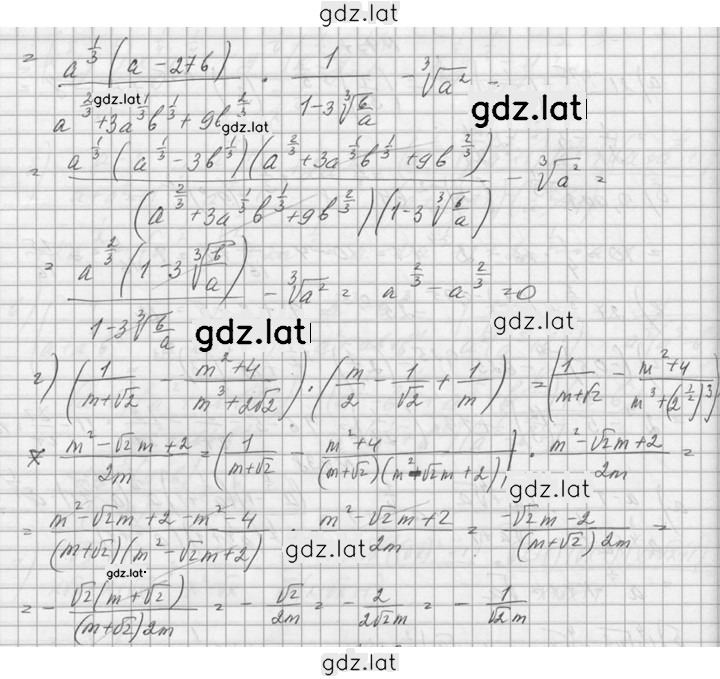 gdz.lat
= a^(1/3)(a - 27b) / (a^(2/3) + 3a^(1/3)b^(1/3) + 9b^(2/3)) · 1 / (1 - 3∛(b/a)) - ∛a² =
gdz.lat gdz.lat gdz.lat
= a^(1/3)(a^(1/3) - 3b^(1/3))(a^(2/3) + 3a^(1/3)b^(1/3) + 9b^(2/3)) / ((a^(2/3) + 3a^(1/3)b^(1/3) + 9b^(2/3))(1 - 3∛(b/a))) - ∛a² =
= a^(2/3)(1 - 3∛(b/a)) / (1 - 3∛(b/a)) - ∛a² = a^(2/3) - a^(2/3) = 0
gdz.lat gdz.lat
г) (1/(m+√2) - (m²+4)/(m³+2√2)) · (m/2 - 1/√2 + 1/m) = (1/(m+√2) - (m²+4)/(m³+(2^(1/2))³)) ×
× (m² - √2m + 2)/2m = (1/(m+√2) - (m²+4)/((m+√2)(m² - √2m + 2))) · (m² - √2m + 2)/2m =
gdz.lat
= (m² - √2m + 2 - m² - 4)/((m+√2)(m² - √2m + 2)) · (m² - √2m + 2)/2m = (-√2m - 2)/((m+√2)2m) =
gdz.lat gdz.lat
= - √2(m+√2)/((m+√2)2m) = - √2/2m = - 2/(2√2m) = - 1/(√2m)
gdz.lat